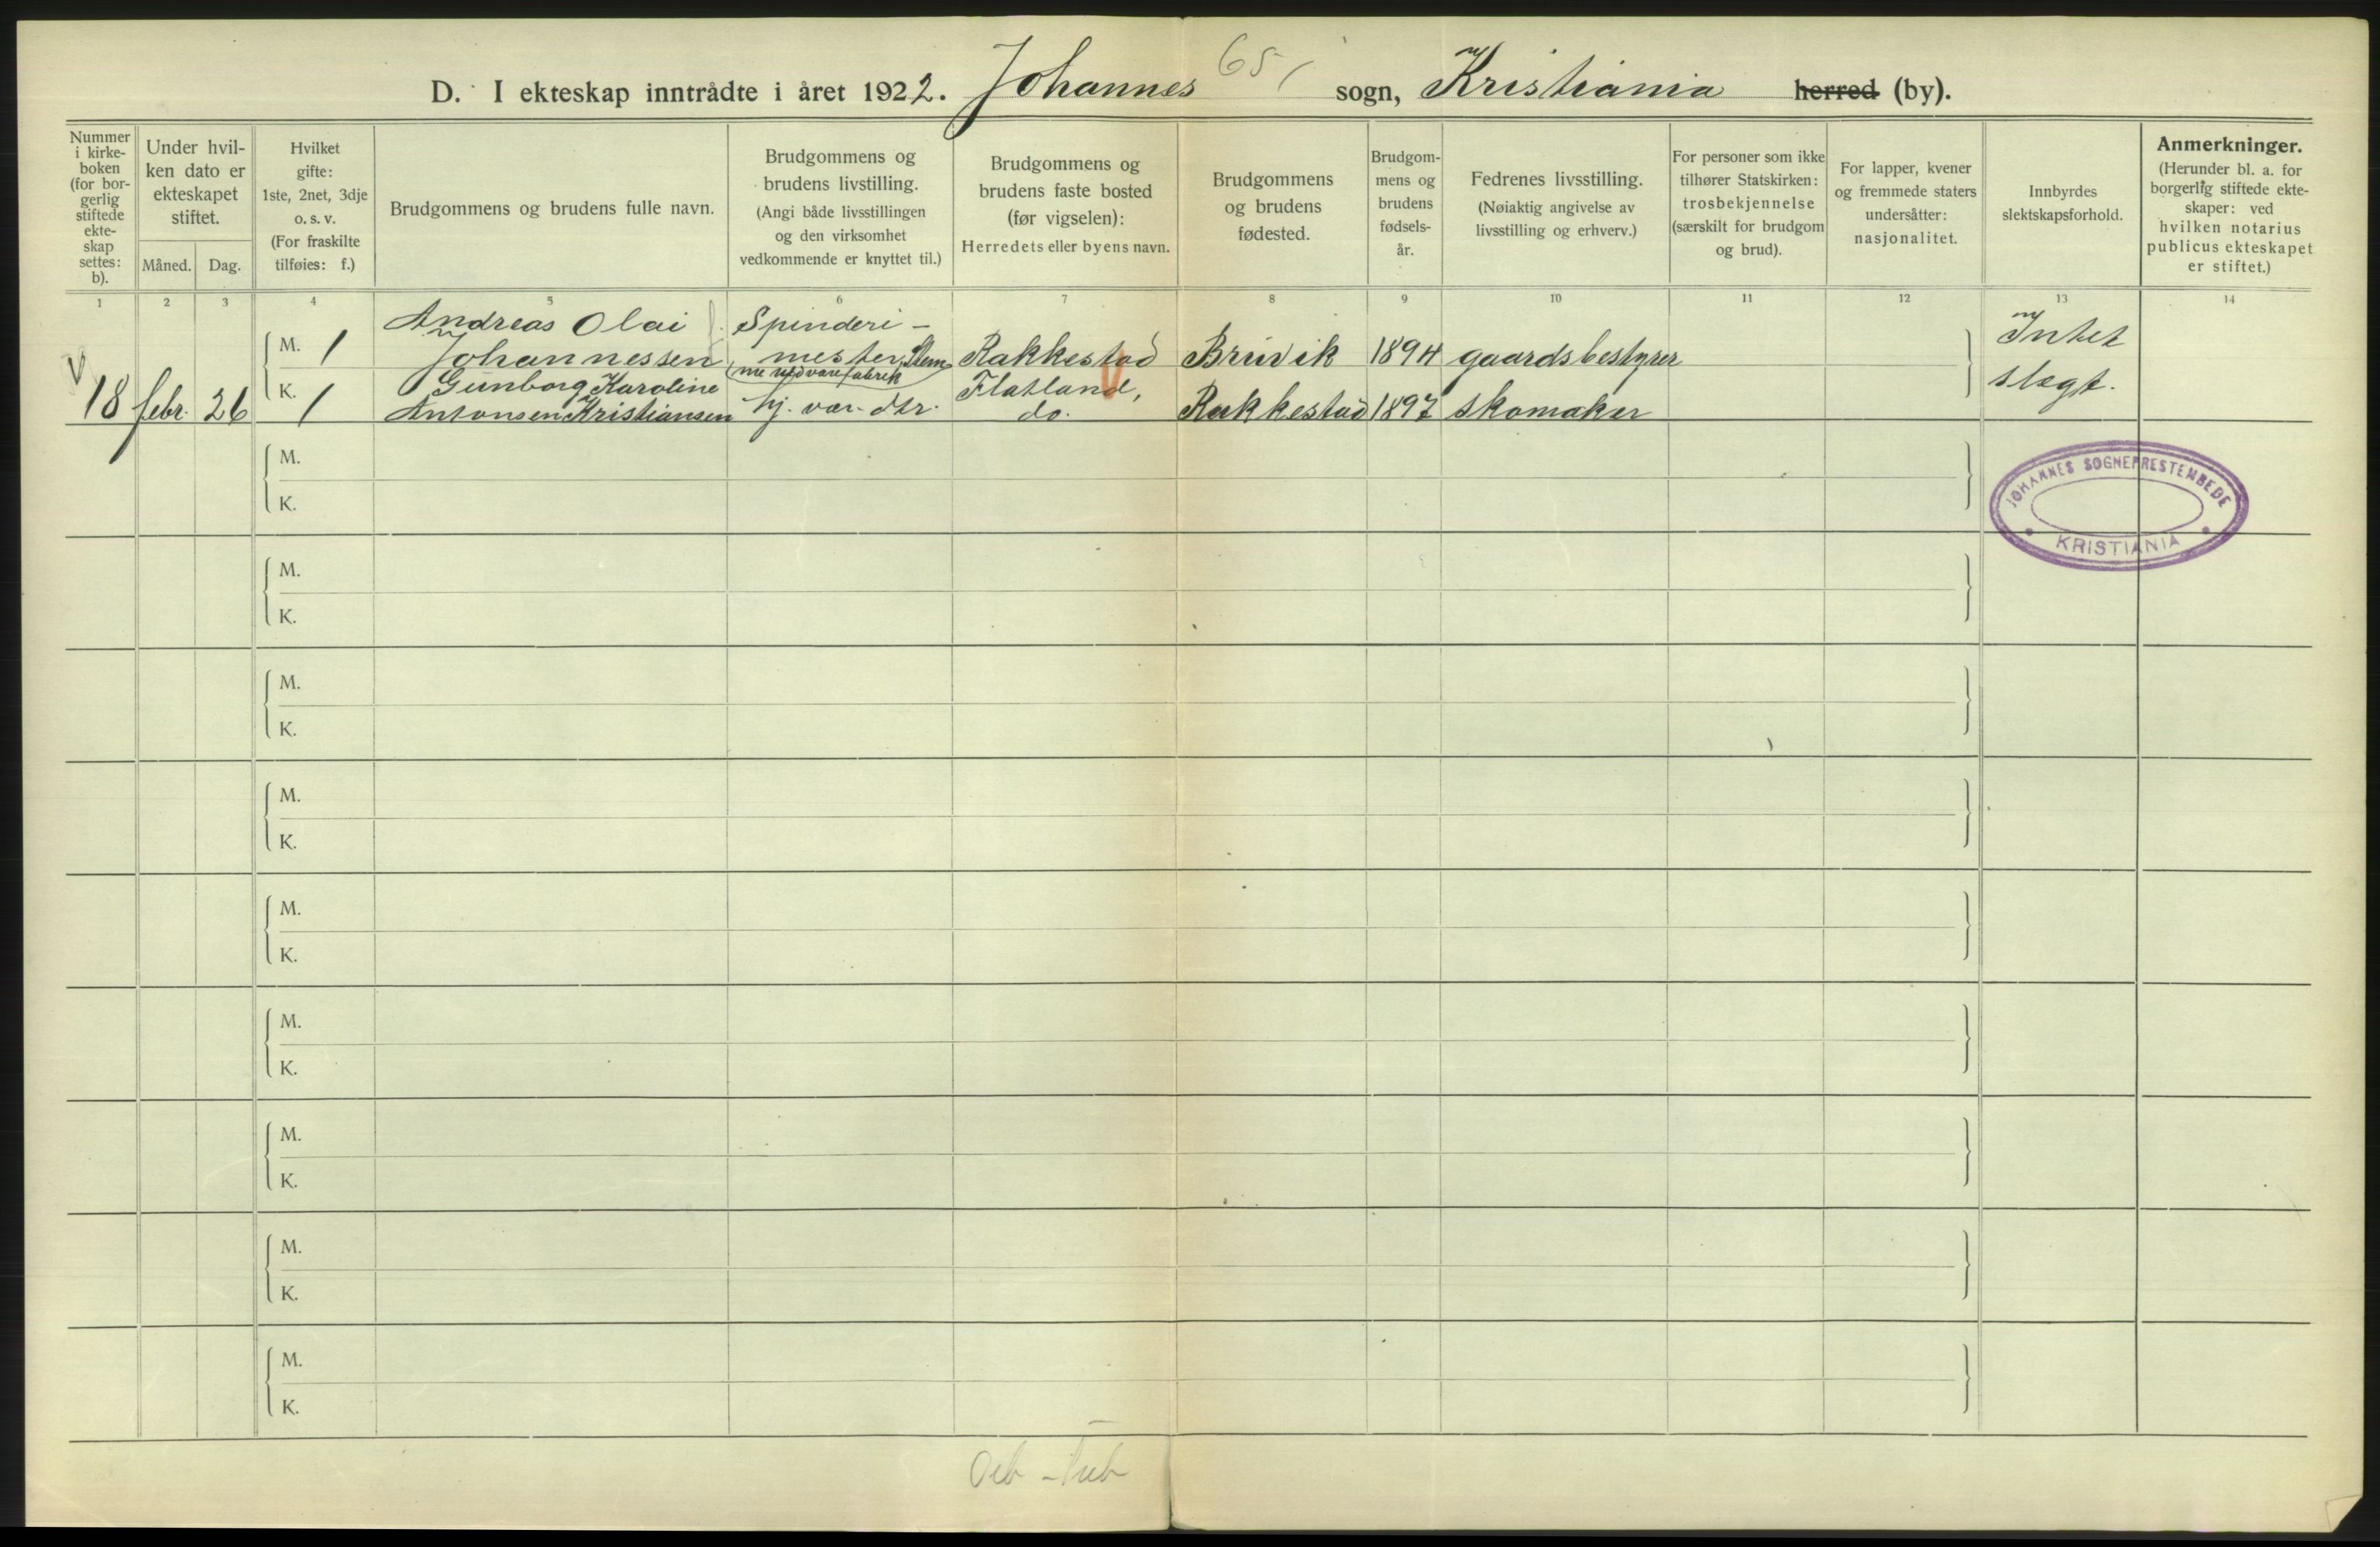 65
D. I ekteskap inntrådte i året 1922. Johannes sogn, Kristiania herred (by).
Nummer
i kirke-
boken
(for bor-
gerlig
stiftede
ekte-
skap
settes:
b).
Under hvil-
ken dato er
ekteskapet
stiftet.
Måned. Dag.
Hvilket
gifte:
1ste, 2net, 3dje
o. s. v.
(For fraskilte
tilføies: f.)
Brudgommens og brudens fulle navn.
Brudgommens og
brudens livstilling.
(Angi både livsstillingen
og den virksomhet
vedkommende er knyttet til.)
Brudgommens og
brudens faste bosted
(før vigselen):
Herredets eller byens navn.
Brudgommens
og brudens
fødested.
Brudgom-
mens og
brudens
fødsels-
år.
Fedrenes livsstilling.
(Nøiaktig angivelse av
livsstilling og erhverv.)
For personer som ikke
tilhører Statskirken:
trosbekjennelse
(særskilt for brudgom
og brud).
For lapper, kvener
og fremmede staters
undersåtter:
nasjonalitet.
Innbyrdes
slektskapsforhold.
Anmerkninger.
(Herunder bl. a. for
borgerlig stiftede ekte-
skaper: ved
hvilken notarius
publicus ekteskapet
er stiftet.)
1 2 3 4 5 6 7 8 9 10 11 12 13 14
18 febr. 26
M. 1
K. 1
Andreas Olai
Johannessen
Gunborg Karoline
Antonsen Kristiansen
Spinderi-
mester
hj. vær. dtr.
Rakkestad
Flatland,
do.
Bruvik
Rakkestad
1894
1897
gaardsbestyrer
skomaker
Intet
slegt.
JOHANNES SOGNEPRESTEMBEDE
KRISTIANIA
M.
K.
M.
K.
M.
K.
M.
K.
M.
K.
M.
K.
M.
K.
M.
K.
M.
K.